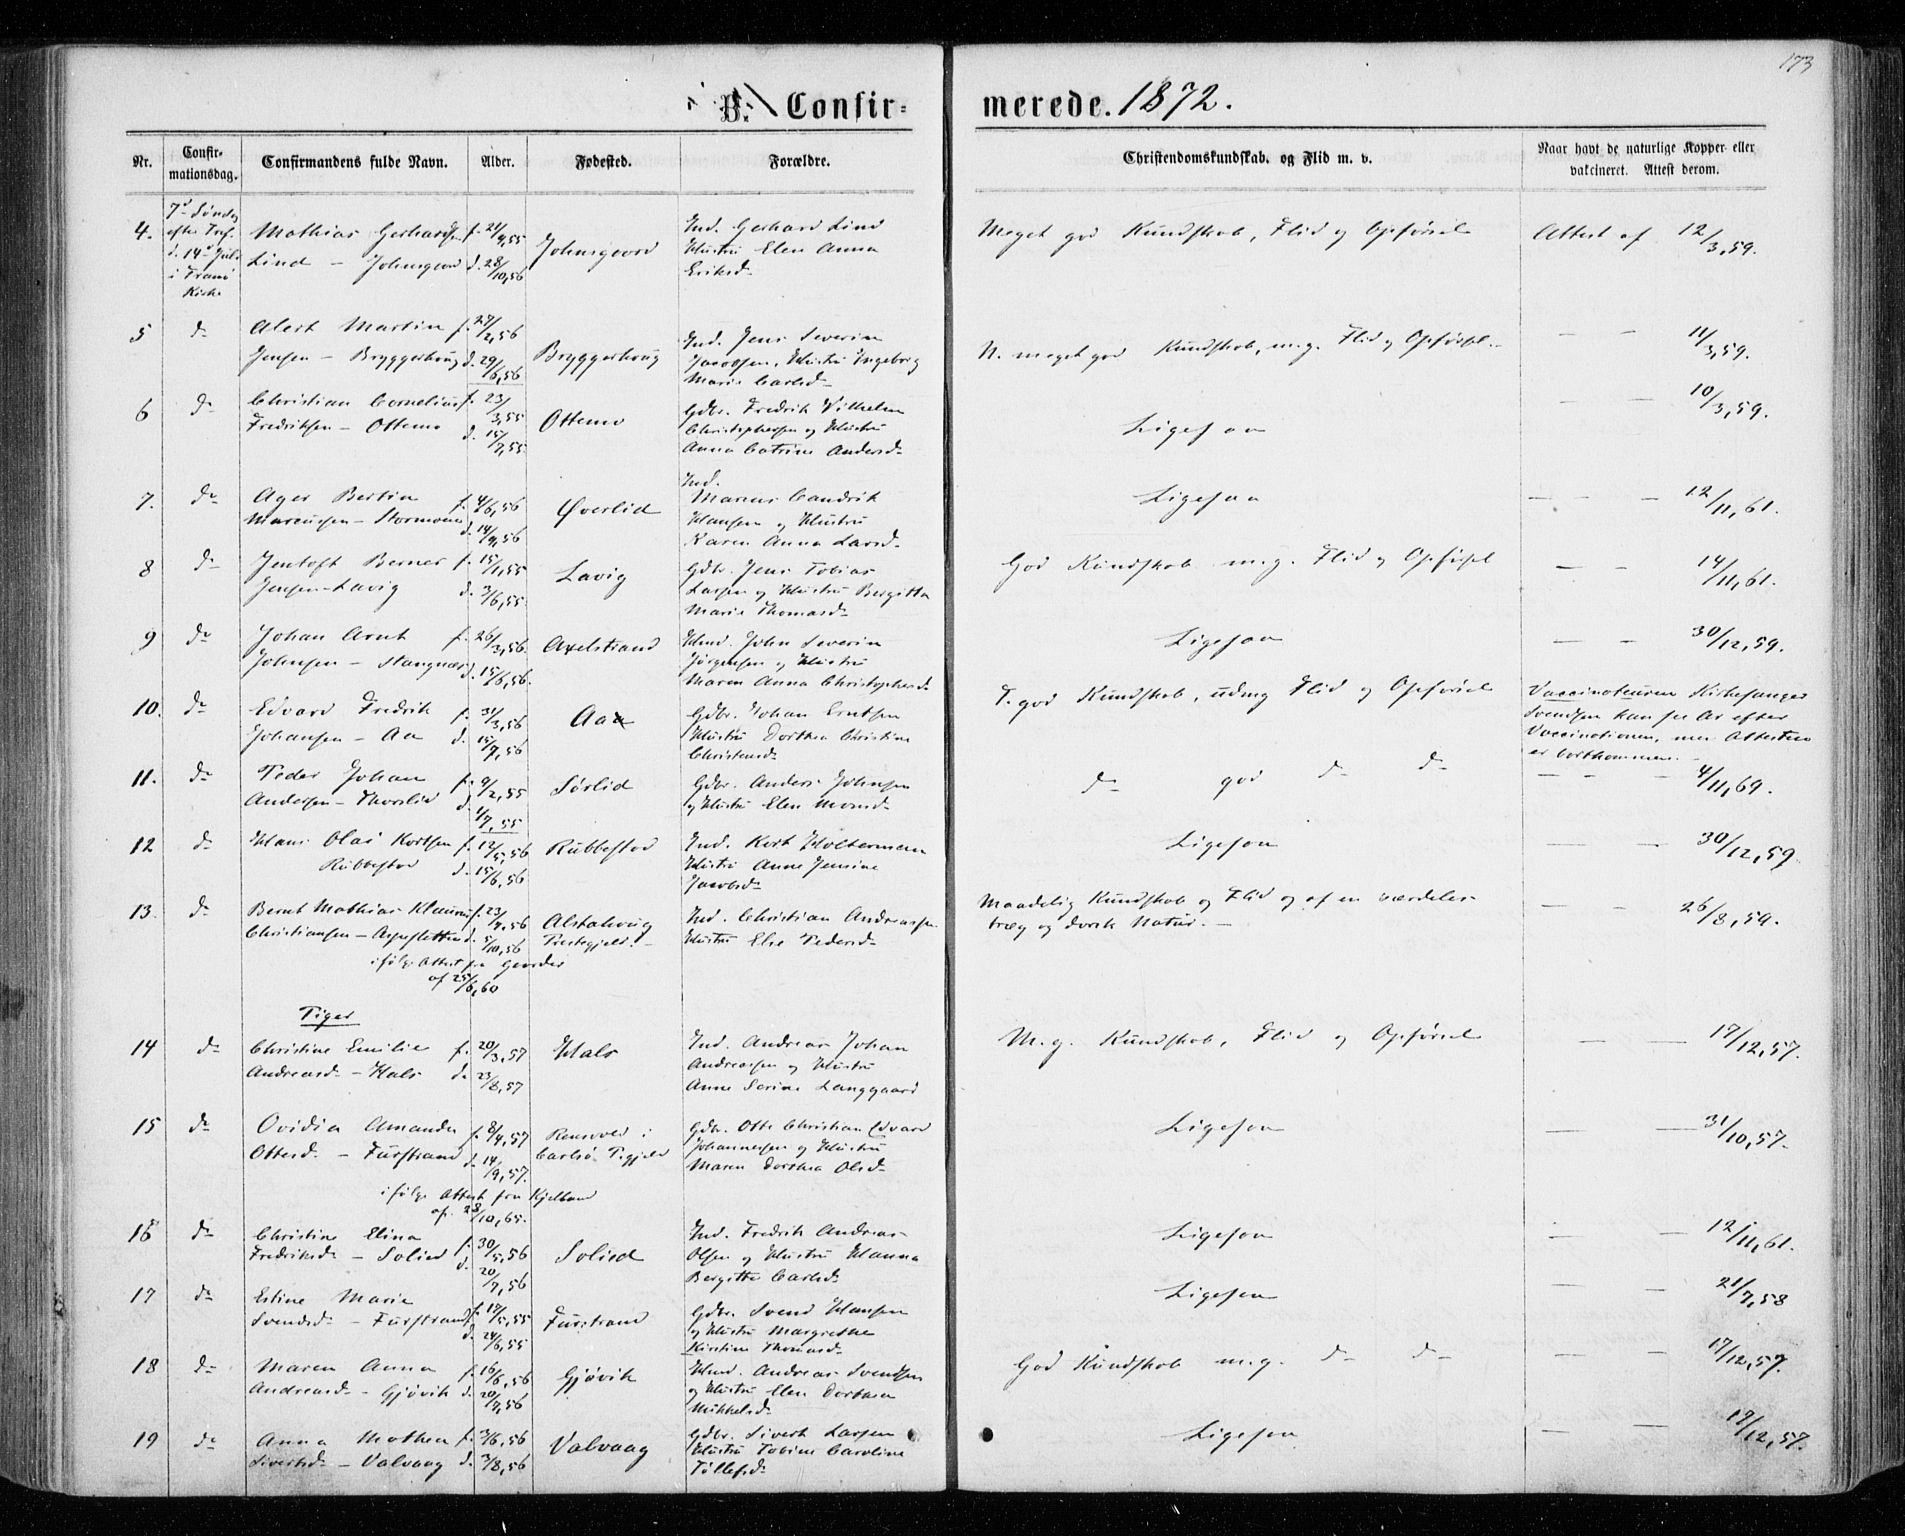 173
B. Confir-
merede. 1872.
Nr.
Confir-
mationsdag.
Confirmandens fulde Navn.
Alder.
Fødested.
Forældre.
Christendomskundskab og Flid m. v.
Naar havt de naturlige Kopper eller
vakcineret. Attest derom.
4. 7d Søndag
efter Tref.
d. 14d Juli
i Tranø
Kirke
Mathias Gerhardsen
Lind – Johnsgaard
f. 21/9,55
d. 28/10,56
Johnsgaard
Ind. Gerhard Lind
Hustru Elen Anna
Eriksd.
Meget god Kundskab, Flid og Opførsel
Attest af 12/3,59.
5 do
Alert Martin
Jensen – Bryggerhaug
f. 27/2,56
d. 29/6,56
Bryggerhaug
Ind. Jens Severin
Jacobsen, Hustru Ingeborg
Marie Carlsd.
N. meget god Kundskab, m.g. Flid og Opførsel.
— — 11/3,59.
6 do
Christian Cornelius
Fredriksen – Ottemo
f. 23/3,55
d. 15/7,55
Ottemo
Gdbr. Fredrik Vilhelm
Christophersen og Hustru
Anna Catrine Andersd.
Ligesaa
— — 10/3,59.
7. do
Ager Bertin
Marcussen – Stormoen
f. 4/6,56
d. 14/9,56
Øverlid
Ind.
Marcus Candrik
Hansen og Hustru
Karen Anna Larsd.
Ligesaa
— — 12/11,61.
8 do
Jentoft Berner
Jensen – Lavig
f. 15/1,55
d. 3/6,55
Lavig
Gdbr. Jens Tobias
Larsen og Hustru Bergitta
Marie Thomasd.
God Kundskab m.g. Flid og Opførsel
— — 14/11,61.
9 do
Johan Arnt
Johnsen – Stangnæs
f. 26/3,56.
d. 15/6,56.
Axelstrand
Hmd. John Severin
Jørgensen og Hustru
Maren Anna Christophersd.
Ligesaa
— — 30/12,59.
10. do
Edvard Fredrik
Johansen – Aa
f. 31/3,56
d. 15/7,56
Aa
Gdbr. Johan Erntsen
Hustru Dorthea Christine
Christensd.
T. god Kundskab, udmg Flid og Opførsel
Vaccinateuren Kirkesanger
Svendsen kan se Ar efter
Vaccinationen, men Attesten
er bortkommen.
11. do
Peder Johan
Andersen – Thorslid
f. 9/2,55
d. 1/7,55
Sørlid
Gdbr. Anders Johnsen
og Hustru Elen Monsd.
do god do do
— — 4/11,69.
12 do
Hans Olai Kortsen
Rubbestad
f. 12/5,56
d. 15/6,56
Rubbestad
Ind. Kort Holterman
Hustru Anne Jensine
Jacobsd.
Ligesaa
— 30/12,59.
13. do
Bernt Mathias Klaurus
Christiansen – Aspeslettind
f. 23/4,56
d. 5/10,56
ifølge Attest fra
af 25/6,60
Alstahoug
Præstegjeld. –
Ind. Christian Andreassen
Hustru Else Pedersd.
Maadelig Kundskab og Flid og af en særdeles
træg og dorsk Natur. –
— — 26/8,59.
Piger
14 do
Christine Emilie
Andreasd. – Hals
f. 20/3,57
d. 23/8,57
Hals
Ind. Andreas Johan
Andreassen og Hustru
Anne Serine Langgaard
M.g. Kundskab, Flid og Opførsel
— — 17/12,57.
15 do
Ovidia Amanda
Ottesd. – Furstrand
f. 8/4,57
d. 14/9,57.
ifølge Attest fra
af 28/10,65.
Rensvold i
Carlsø P.gjeld
Gdbr. Otte Christian Edvard
Johannesen og Hustru
Maren Dorthea Olsd.
Ligesaa
— — 31/10,57.
16 do
Christine Elina
Fredriksd. – Solied
f. 30/5,56
d. 20/7,56
Solied
Ind. Fredrik Andreas
Olsen og Hustru Hanna
Bergitte Carlsd.
Ligesaa
— — 12/11,61.
17 do
Estine Marie
Svendsd. – Furstrand
f. 17/5,55
d. 24/6,55
Furstrand
Gdbr. Svend Hansen
og Hustru Margrethe
Kirstine Thomasd.
Ligesaa
— — 21/7,58
18 do
Maren Anna
Andreasd. – Gjøvik
f. 16/6,56
d. 20/7,56
Gjøvik
Hmd. Andreas Svendsen
og Hustru Elen Dorthea
Mikkelsd.
God Kundskab m.g. do do
— — 17/12,57.
19 do
Anna Mathea
Sivertsd. – Valvaag
f. 3/6,56
d. 3/8,56
Valvaag
Gdbr. Sivert Larsen
Hustru Tobine Caroline
Tøllefsd.
Ligesaa
— — 17/12,57.